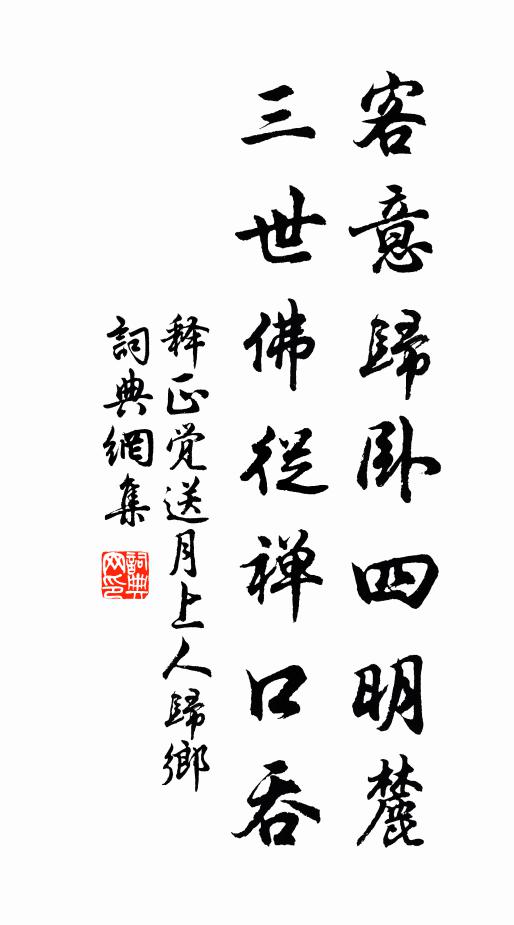 客意歸卧四明麓
三世佛從禅口吞
释正覚送月上人歸鄉
詞典網集
詞典網印